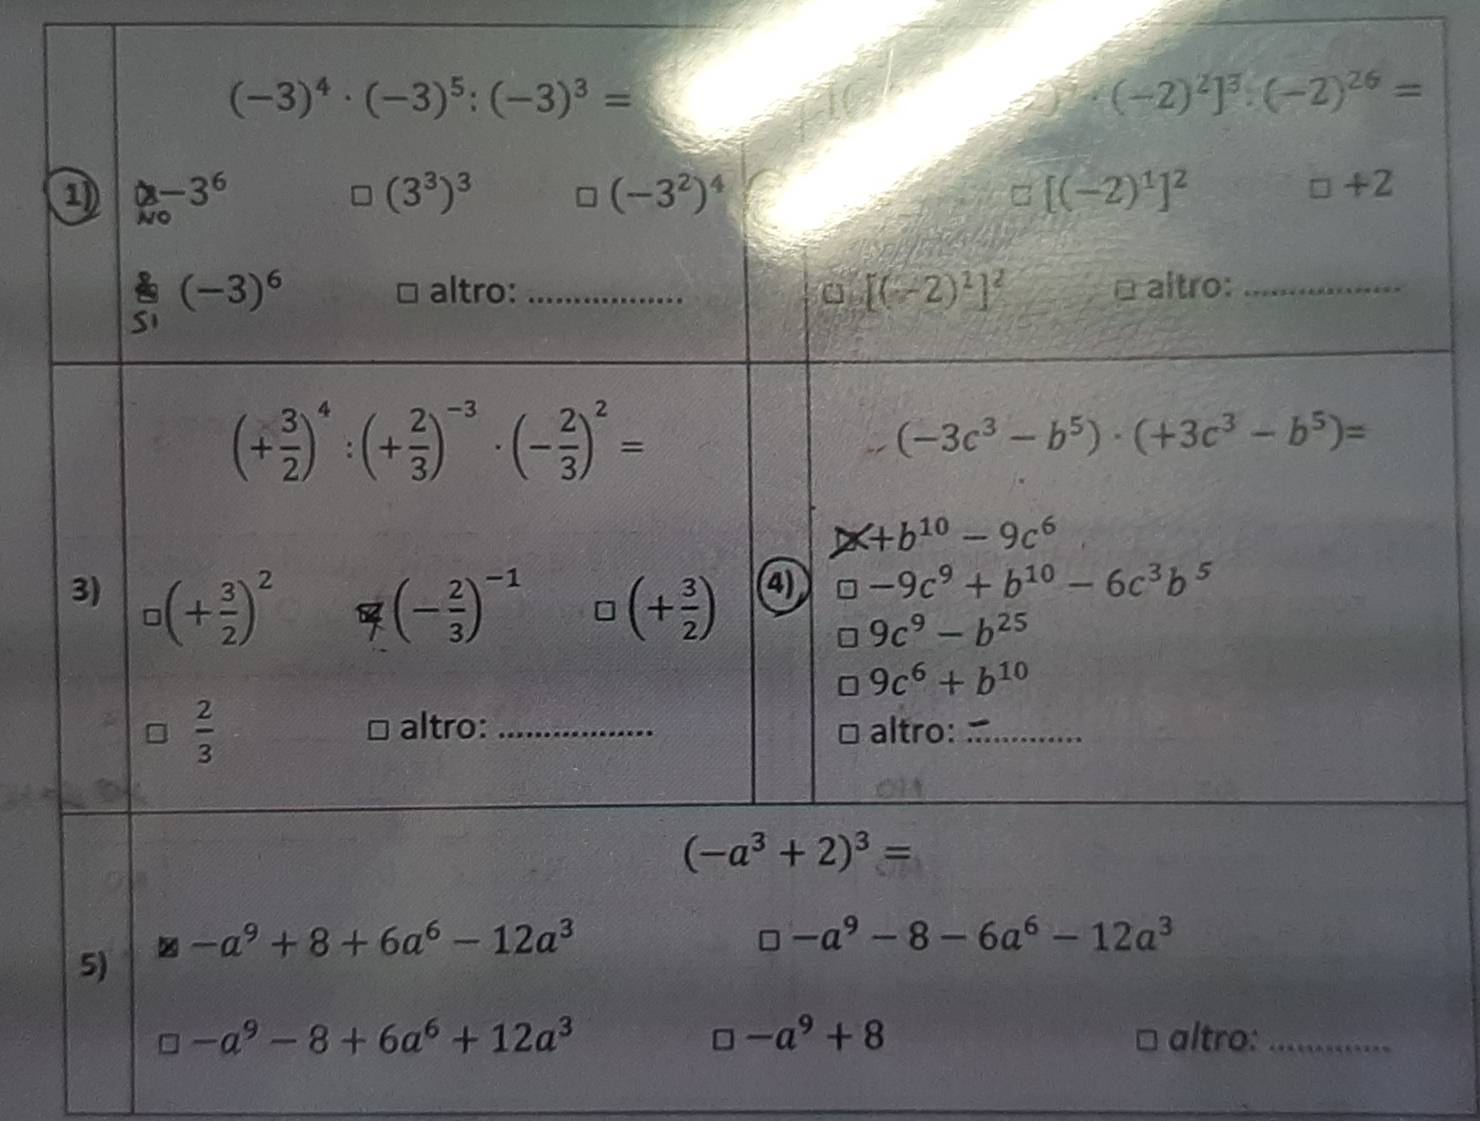 (−3)⁴ · (−3)⁵: (−3)³ =
1) −3⁶ □ (3³)³ □ (−3²)⁴
NO
(−3)⁶ □ altro: ..................
SI
· (−2)²]³: (−2)²⁶ =
□ [(−2)¹]² □ +2
□ [(−2)²]² □ altro: ..................
3) (+3/2)⁴ : (+2/3)⁻³ · (−2/3)² =
□ (+3/2)² ☒ (−2/3)⁻¹ □ (+3/2)
□ 2/3 □ altro: ..................
4) (−3c³ − b⁵) · (+3c³ − b⁵)=
☒ +b¹⁰ − 9c⁶
□ −9c⁹ + b¹⁰ − 6c³b⁵
□ 9c⁹ − b²⁵
□ 9c⁶ + b¹⁰
□ altro: .............
5) (−a³ + 2)³ =
☒ −a⁹ + 8 + 6a⁶ − 12a³ □ −a⁹ − 8 − 6a⁶ − 12a³
□ −a⁹ − 8 + 6a⁶ + 12a³ □ −a⁹ + 8 □ altro: .............